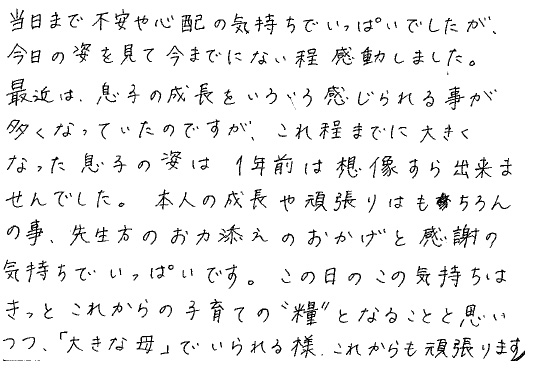 当日まで不安や心配の気持ちでいっぱいでしたが、
今日の姿を見て今までにない程感動しました。
最近は、息子の成長をいろいろ感じられる事が
多くなっていたのですが、これ程までに大きく
なった息子の姿は1年前は想像すら出来ま
せんでした。本人の成長や頑張りはもちろん
の事、先生方のお力添えのおかげと感謝の
気持ちでいっぱいです。この日のこの気持ちは
きっとこれからの子育ての“糧”となることと思い
つつ、「大きな母」でいられる様、これからも頑張ります。